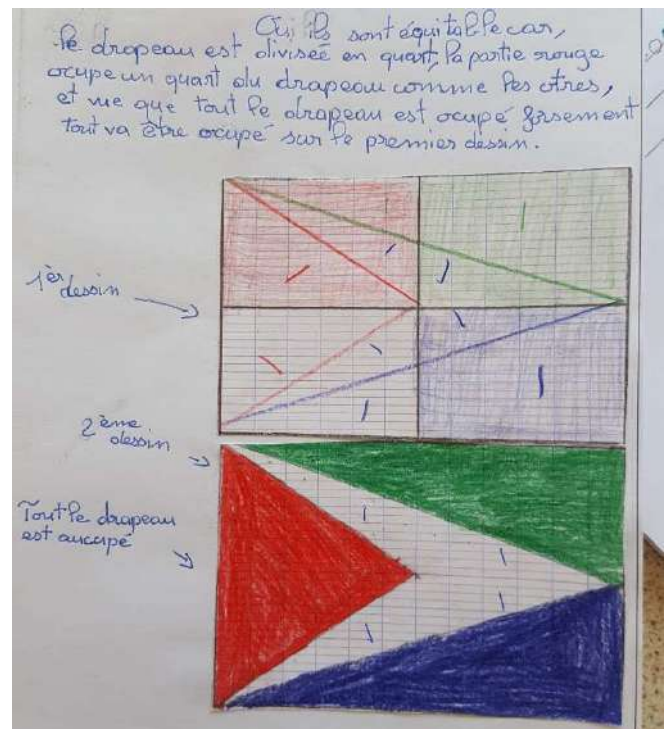 Oui, ils sont équitable car,
le drapeau est diviseé en quart, la partie rouge
ocupe un quart du drapeau comme les otres,
et vue que tout le drapeau est ocupé forsement
tout va être ocupé sur le premier dessin.
1er dessin
2ème dessin
Tout le drapeau
est auccupé